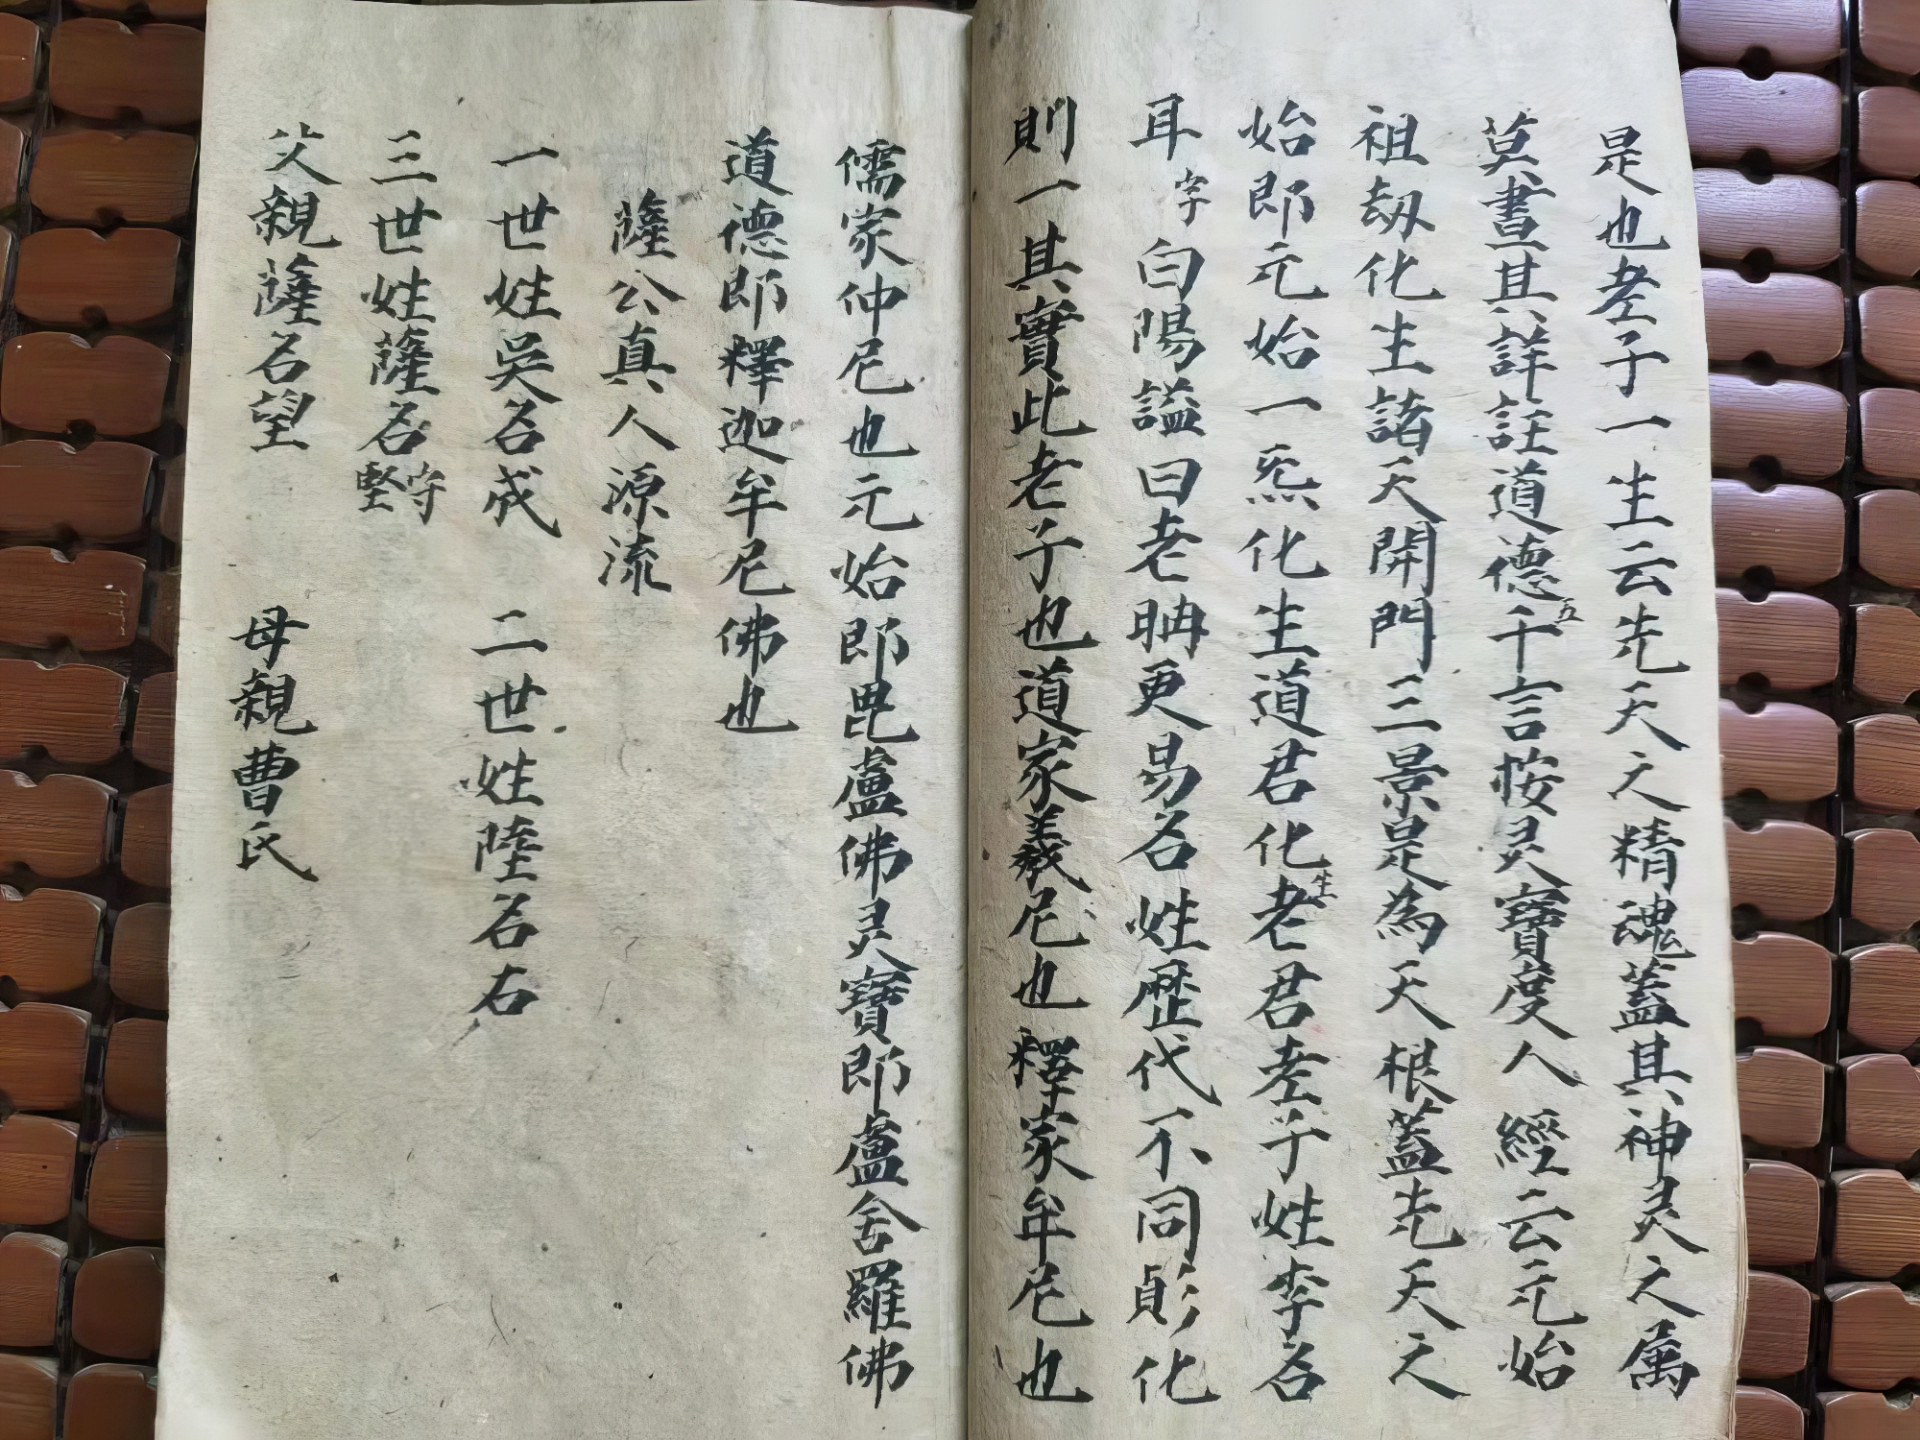 是也老子一生云先天之精魂蓋其神灵之属
莫晝其詳註道德五千言按灵寶度人經云元始
祖刼化生諸天開門三景是為天根蓋先天之
始即元始一炁化生道君化生老君老子姓李名
耳字白陽謚曰老聃更易名姓歷代不同化
則一其實此老子也道家羲尼也釋家牟尼也
儒家仲尼也元始即毘盧佛灵寶即盧舍羅佛
道德即釋迦牟尼佛也
薩公真人源流
一世姓吳名成 二世姓陸名右
三世姓薩名守堅
父親薩名望 母親曹氏